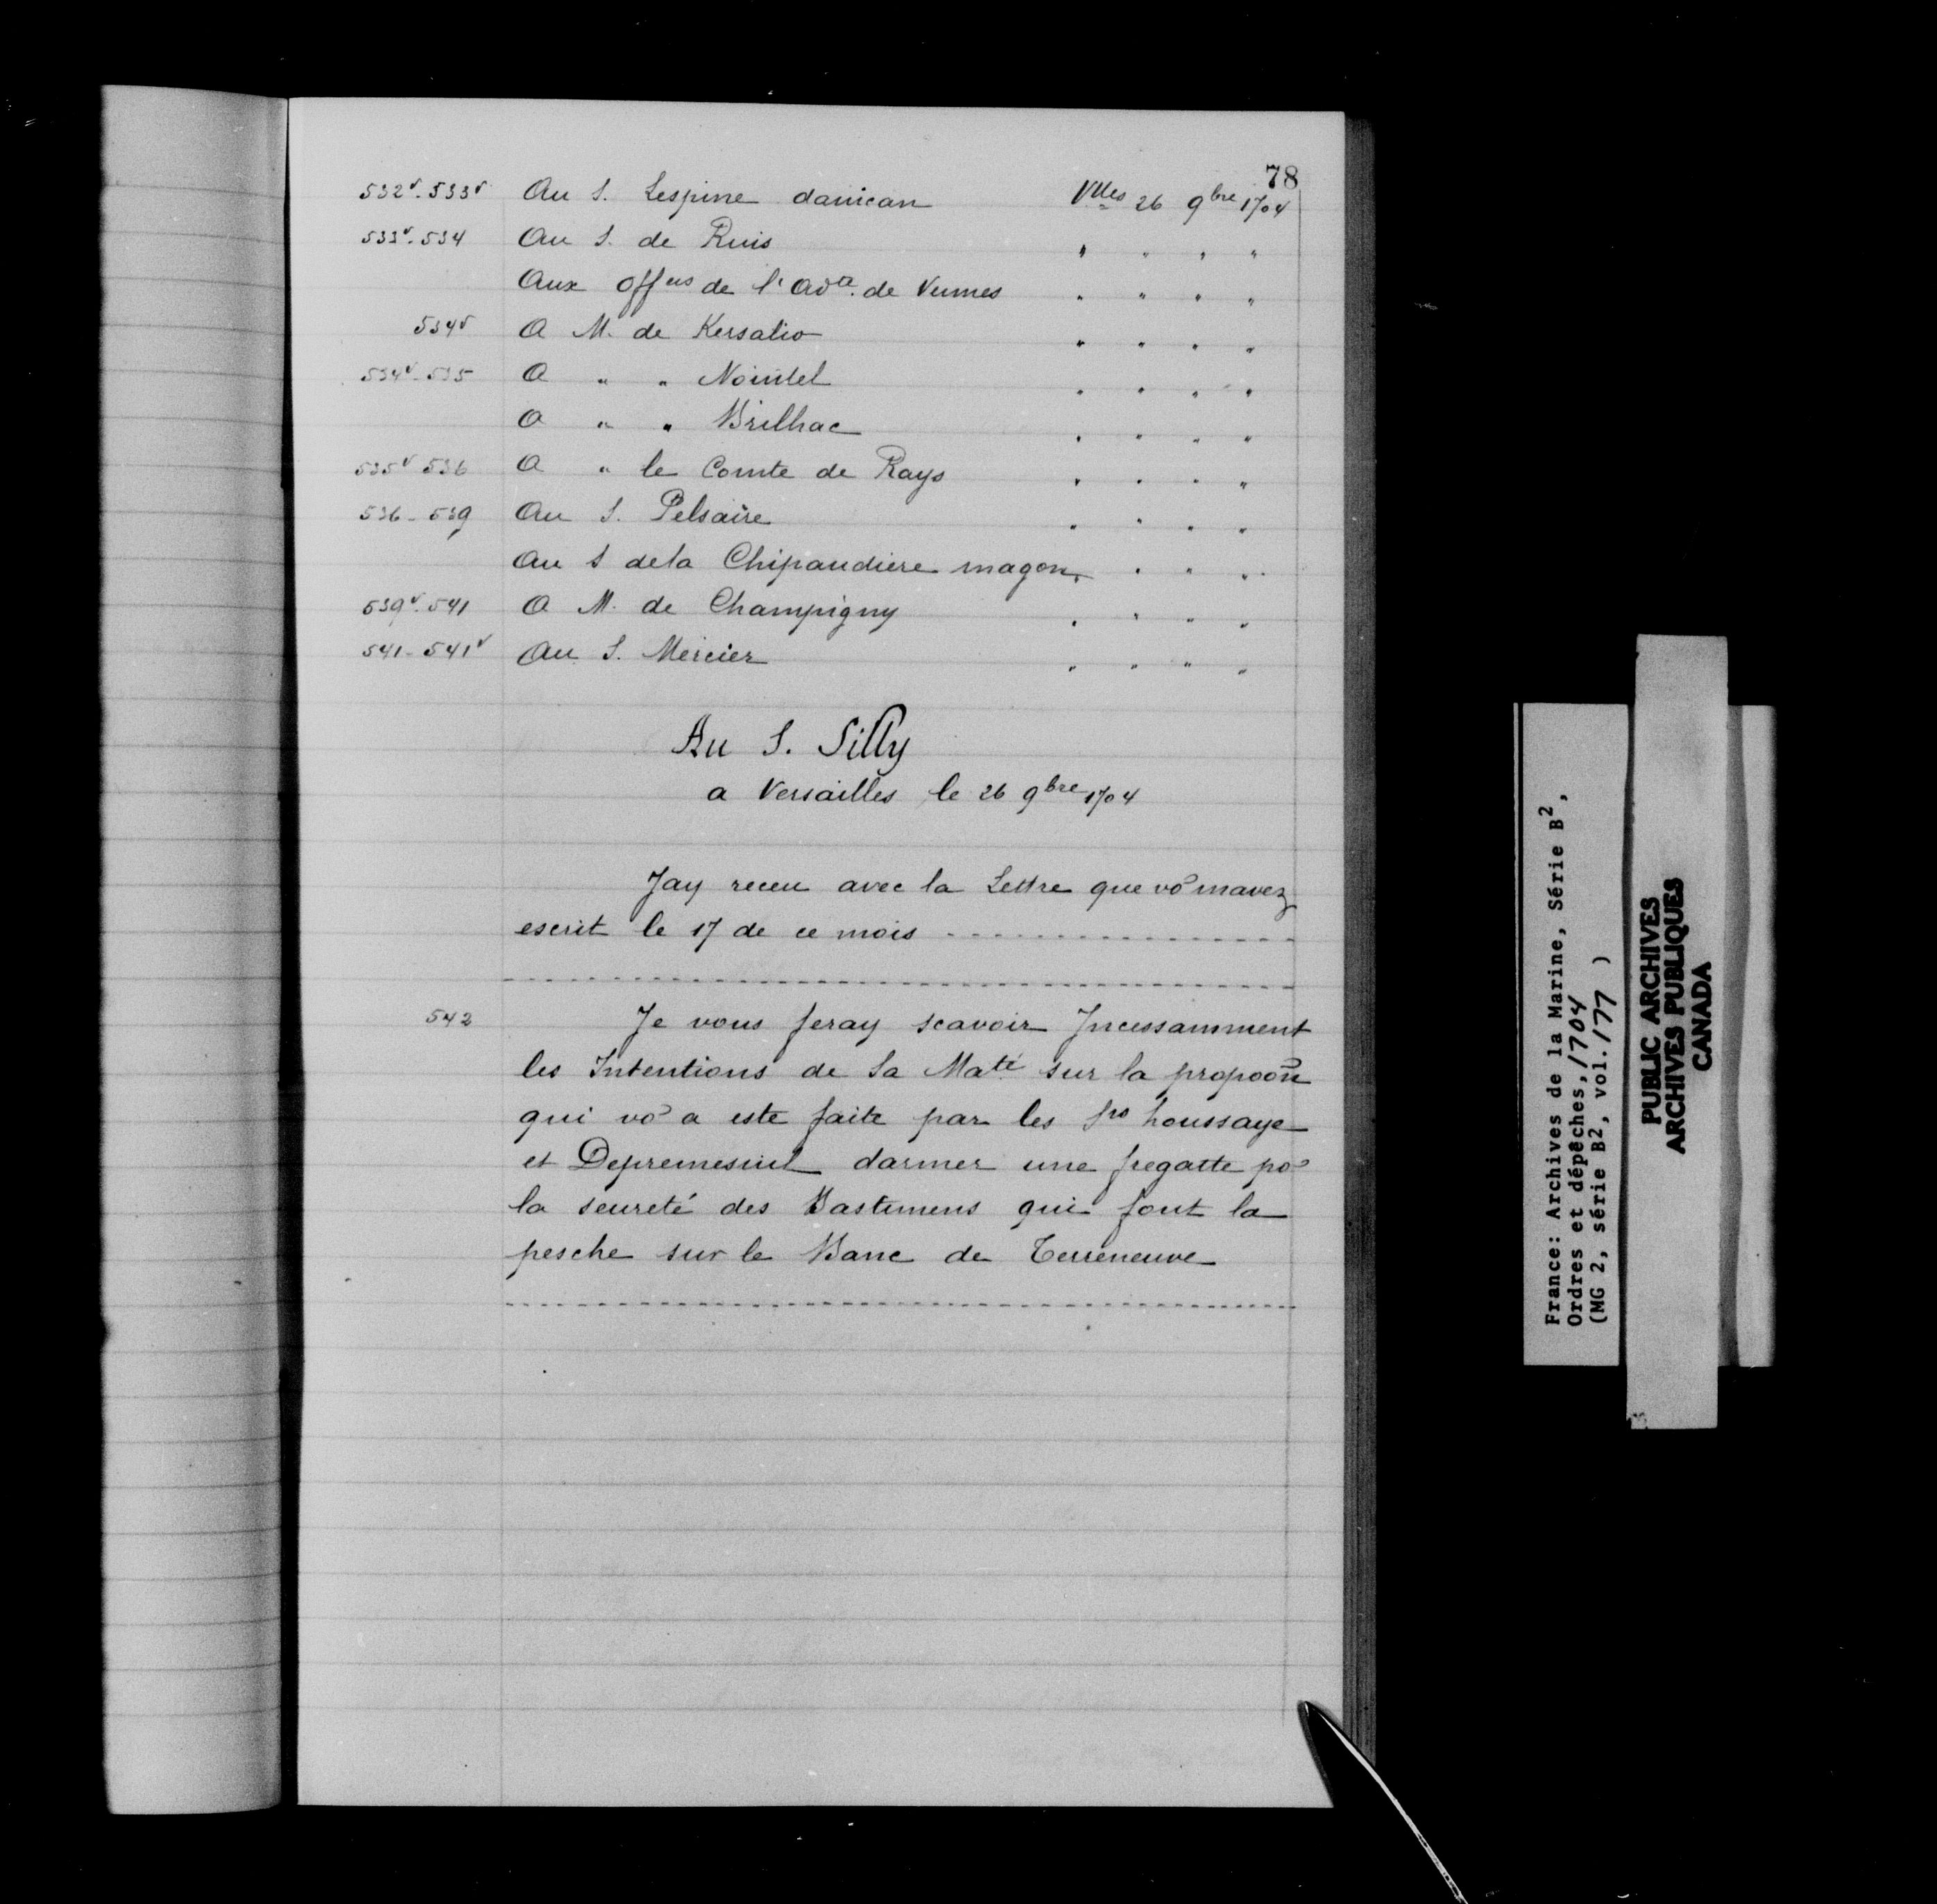 78
532v. 533v Au S. Lespine danican Vlles 26 9bre 1704
533v. 534 Au S. de Ruis " " " "
Aux offers de l'adté. de Vennes " " " "
534v A M. de Kersalio " " " "
534v. 535 A " " Nointel " " " "
A " " Brilhac " " " "
535v 536 A " le Comte de Rays " " " "
536 - 539 Au S. Pelsaire " " " "
Au S dela Chipaudiere magon " " " "
539v. 541 A M. de Champigny " " " "
541 - 541v Au S. Mercier " " " "
Au S. Silly
a Versailles le 26 9bre 1704
Jay receu avec la Lettre que võ mavez
escrit le 17 de ce mois
542 Je vous feray scavoir Incessamment
les Intentions de Sa Maté sur la propoõn
qui võ a este faite par les Srs houssaye
et Depremesnil darmer une fregatte põ
la seureté des Bastimens qui font la
pesche sur le Banc de Terreneuve
France: Archives de la Marine, Série B2,
Ordres et dépêches, 1704
(MG 2, série B2, vol. 177 )
PUBLIC ARCHIVES
ARCHIVES PUBLIQUES
CANADA